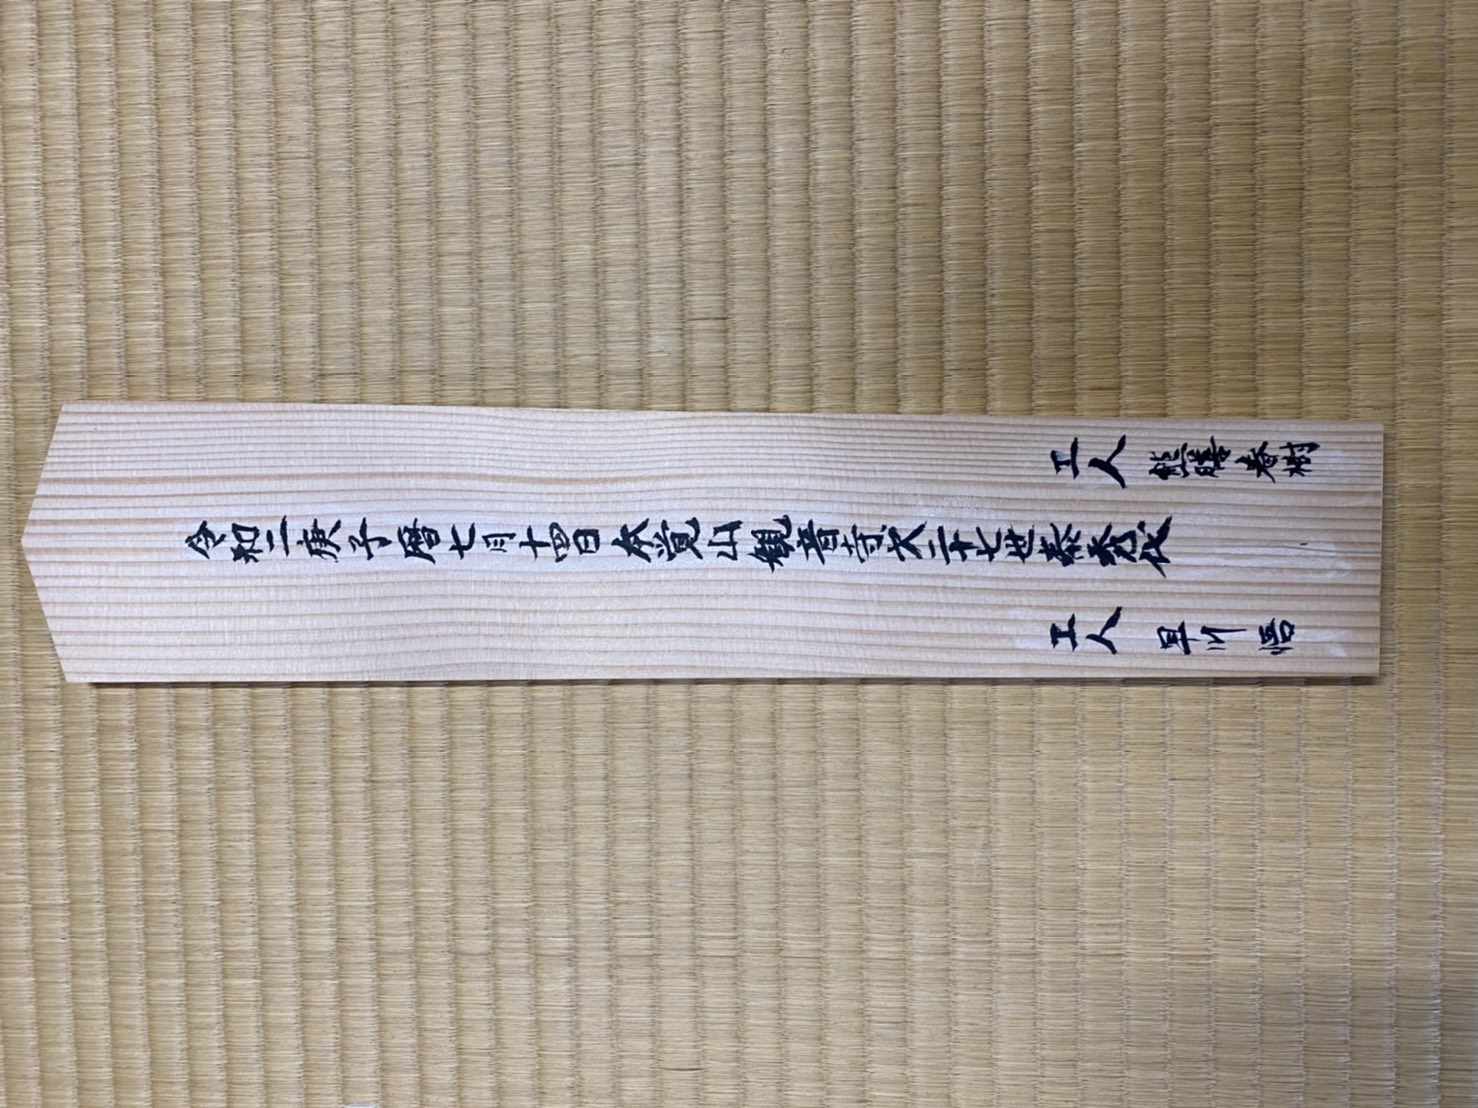 工人 熊膳春樹
令和二庚子暦七月十四日本覚山観音寺二十七世泰秀代
工人 早川悟